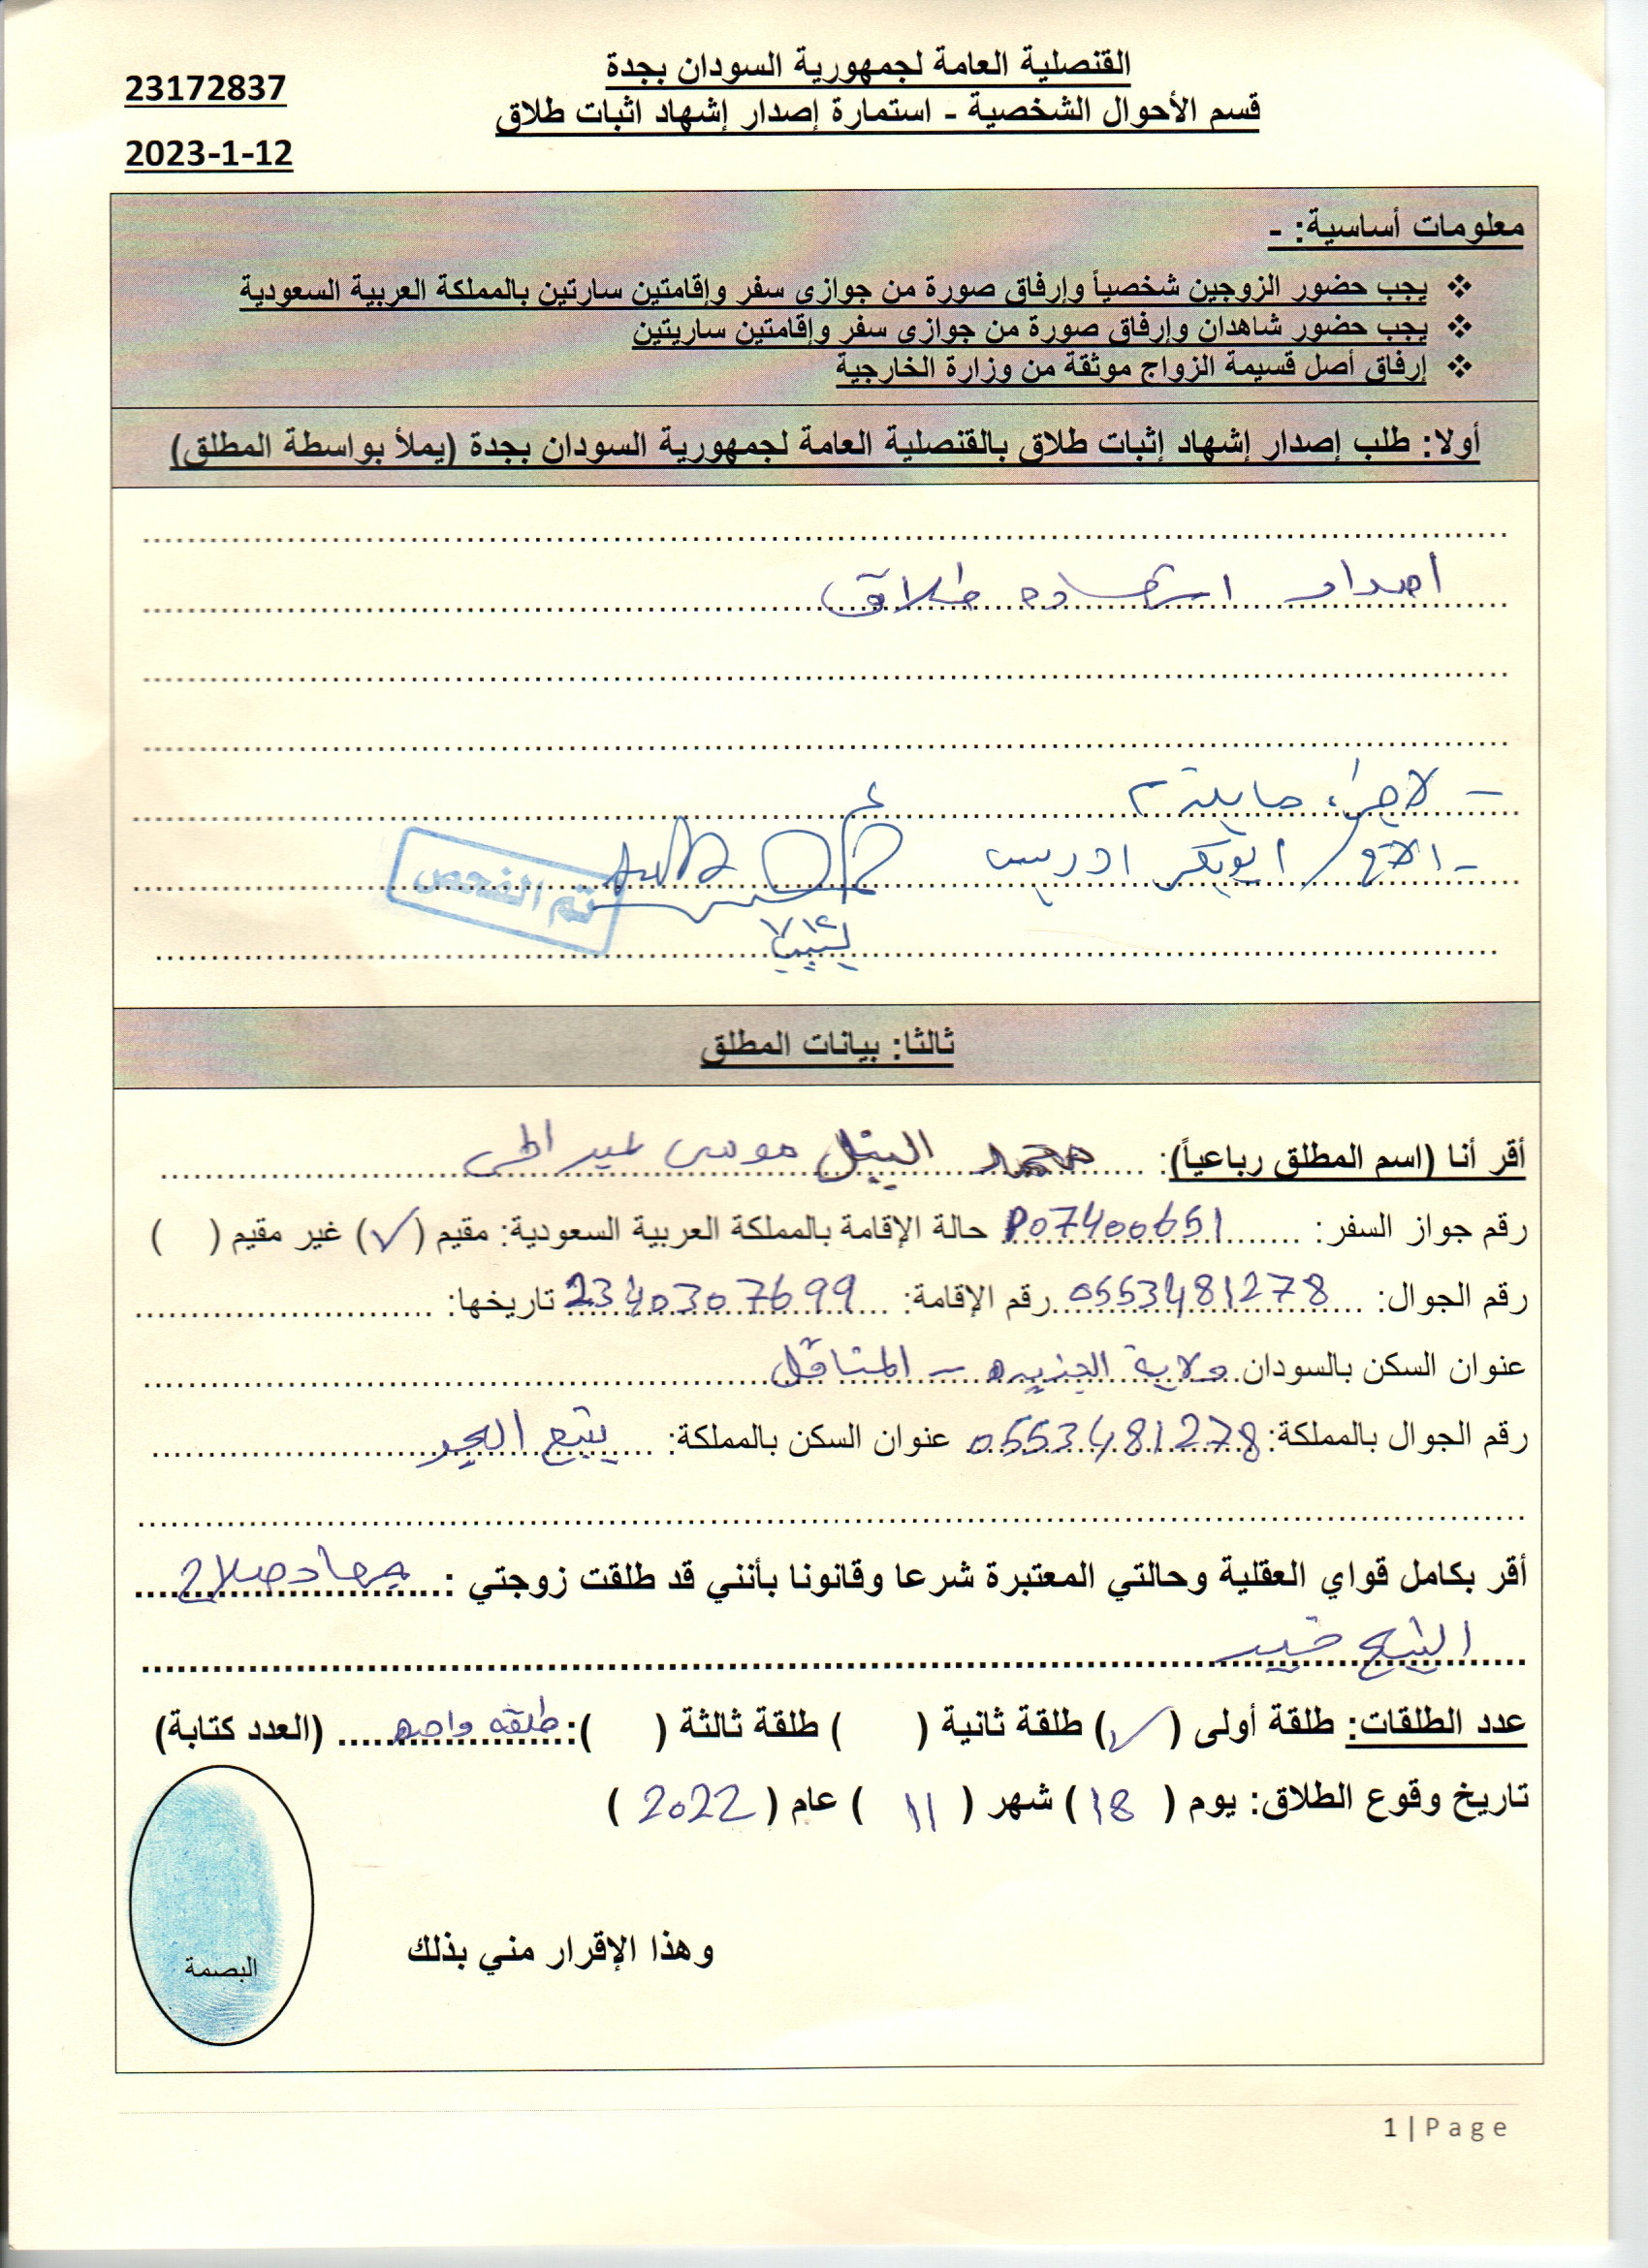 القنصلية العامة لجمهورية السودان بجدة
23172837
قسم الأحوال الشخصية - استمارة إصدار إشهاد اثبات طلاق
2023-1-12
معلومات أساسية: -
❖ يجب حضور الزوجين شخصياً وإرفاق صورة من جوازى سفر وإقامتين سارتين بالمملكة العربية السعودية
❖ يجب حضور شاهدان وإرفاق صورة من جوازى سفر وإقامتين ساريتين
❖ إرفاق أصل قسيمة الزواج موثقة من وزارة الخارجية
أولا: طلب إصدار إشهاد إثبات طلاق بالقنصلية العامة لجمهورية السودان بجدة (يملأ بواسطة المطلق)
اصدار اشهاده طلاق
- لاجراء مايلزم
- الاخ / ابوبكر ادريس
تم الفحص
ثالثا: بيانات المطلق
أقر أنا (اسم المطلق رباعياً): محمد النيل موسى عبد الحي
رقم جواز السفر: P07400651 حالة الإقامة بالمملكة العربية السعودية: مقيم (✓) غير مقيم ( )
رقم الجوال: 0553481278 رقم الإقامة: 2340307699 تاريخها:
عنوان السكن بالسودان ولاية الجزيره - المناقل
رقم الجوال بالمملكة: 0553481278 عنوان السكن بالمملكة: ينبع البحر
أقر بكامل قواي العقلية وحالتي المعتبرة شرعا وقانونا بأنني قد طلقت زوجتي : جهاد صلاح
الشيخ خير
عدد الطلقات: طلقة أولى (✓) طلقة ثانية ( ) طلقة ثالثة ( ): طلقه واحده (العدد كتابة)
تاريخ وقوع الطلاق: يوم ( 18 ) شهر ( 11 ) عام ( 2022 )
وهذا الإقرار مني بذلك
البصمة
1 | Page